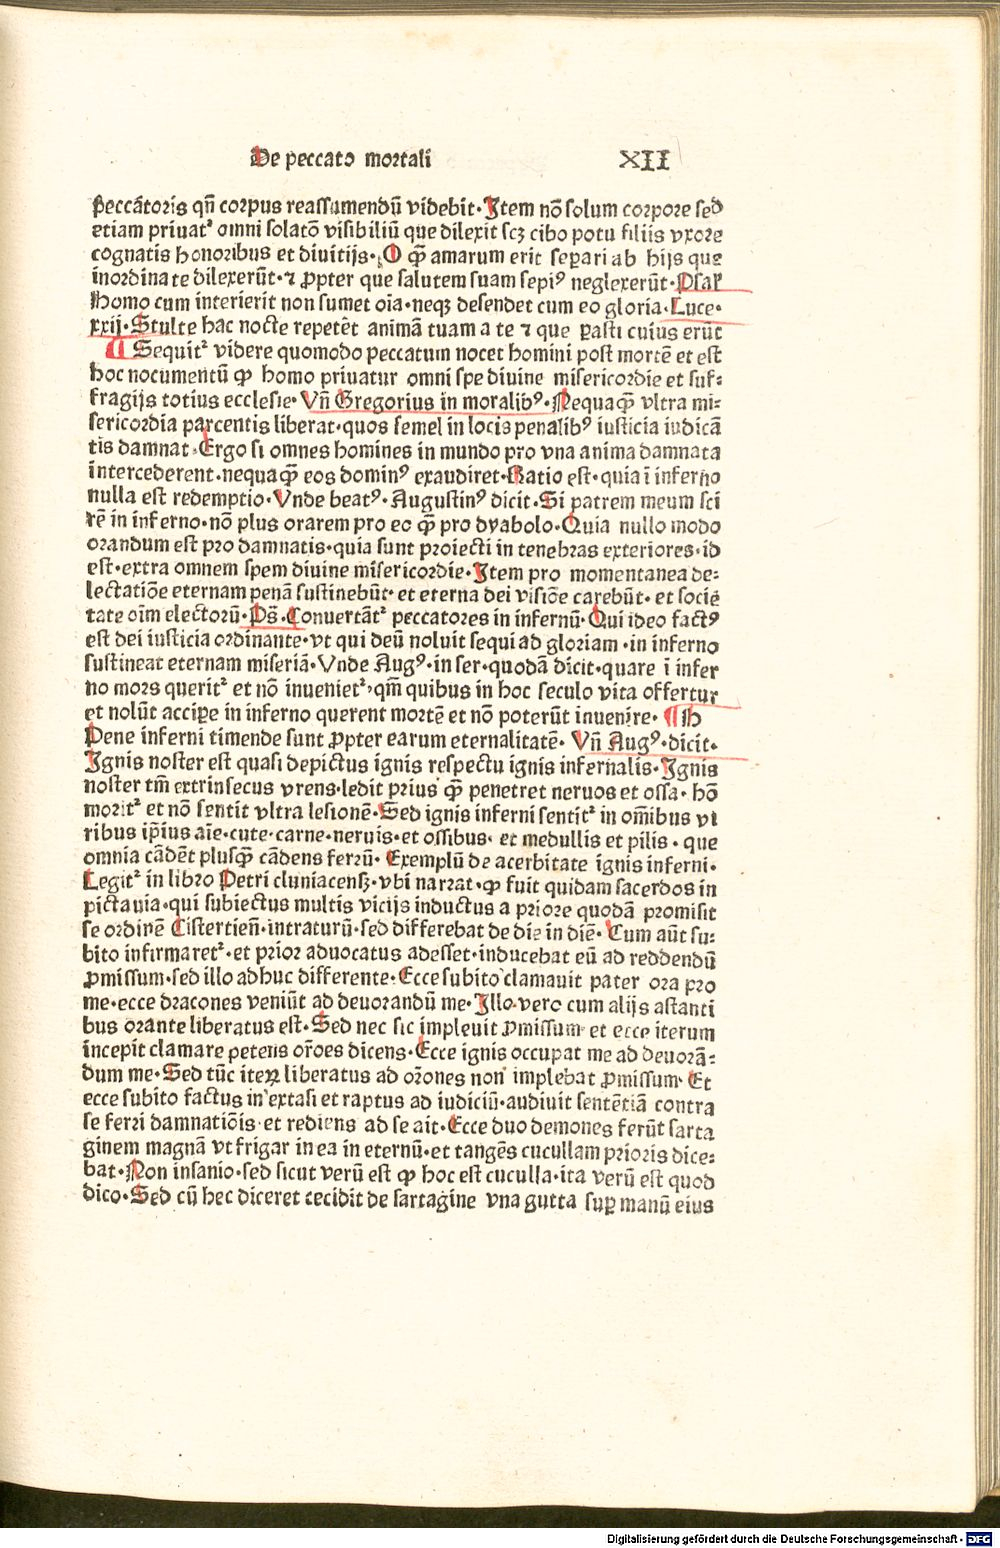 De peccato mortali XII
peccatoris qñ corpus reassumendũ videbit·Item nõ solum corpore sed
etiam priuatꝰ omni solatõ visibiliũ que dilexit scꝫ cibo potu filiis vxore
cognatis honoribus et diuitijs·O q̃ amarum erit separi ab hijs que
inordinate dilexerũt·⁊ ꝓpter que salutem suam sepiꝰ neglexerũt·Psal
Homo cum interierit non sumet oĩa·neqꝫ descendet cum eo gloria·Luce·
xxij·Stulte hac nocte repetẽt animã tuam a te ⁊ que ꝑasti cuius erũt
¶ Sequitᷣ videre quomodo peccatum nocet homini post mortẽ et est
hoc nocumentũ ꝙ homo priuatur omni spe diuine misericordie et suf⸗
fragijs totius ecclesie·Vñ Gregorius in moralibꝰ·Nequaq̃ vltra mi⸗
sericordia parcentis liberat·quos semel in locis penalibꝰ iusticia iudicã
tis damnat·Ergo si omnes homines in mundo pro vna anima damnata
intercederent·nequaq̃ eos dominꝰ exaudiret·Ratio est·quia ĩ inferno
nulla est redemptio·Vnde beatꝰ·Augustinꝰ dicit·Si patrem meum sci
rẽ in inferno·nõ plus orarem pro eo q̃ pro dyabolo·Quia nullo modo
orandum est pro damnatis·quia sunt proiecti in tenebras exteriores·id
est·extra omnem spem diuine misericordie·Item pro momentanea de⸗
lectatiõe eternam penã sustinebũt·et eterna dei visiõe carebũt·et socie
tate oĩm electorũ·Ps̃·Conuertãtᷣ peccatores in infernũ·Qui ideo factꝰ
est dei iusticia ordinante·vt qui deũ noluit sequi ad gloriam·in inferno
sustineat eternam miseriã·Vnde Augꝰ·in ser·quodã dicit·quare ĩ infer
no mors queritᷣ et nõ inuenietᷣ·qm̃ quibus in hoc seculo vita offertur
et nolũt accipe in inferno querent mortẽ et nõ poterũt inuenire· ¶ H
Pene inferni timende sunt ꝓpter earum eternalitatẽ· Vñ Augꝰ·dicit·
Ignis noster est quasi depictus ignis respectu ignis infernalis·Ignis
noster tm̃ extrinsecus vrens·ledit prius q̃ penetret neruos et ossa·hõ
moritᷣ et nõ sentit vltra lesionẽ·Sed ignis inferni sentitᷣ in om̃ibus vi
ribus ip̃ius aĩe·cute·carne·neruis·et ossibus·et medullis et pilis·que
omnia cãdẽt plusq̃ cãdens ferrũ·Exemplũ de acerbitate ignis inferni·
Legitᷣ in libro Petri cluniacensꝫ·vbi narrat·ꝙ fuit quidam sacerdos in
pictauia·qui subiectus multis vicijs inductus a priore quodã promisit
se ordinẽ Cistertieñ·intraturũ·sed differebat de die in diẽ·Cum aũt su⸗
bito infirmaretᷣ·et prior aduocatus adesset·inducebat eũ ad reddendũ
ꝓmissum·sed illo adhuc differente·Ecce subito clamauit pater ora pro
me·ecce dracones veniũt ad deuorandũ me·Illo vero cum alijs astanti
bus orante liberatus est·Sed nec sic impleuit ꝓmissum et ecce iterum
incepit clamare petens or̃oes dicens·Ecce ignis occupat me ad deuorã⸗
dum me·Sed tũc iteꝝ liberatus ad or̃ones non implebat ꝓmissum·Et
ecce subito factus in extasi et raptus ad iudiciũ·audiuit sentẽtiã contra
se ferri damnatiõis·et rediens ad se ait·Ecce duo demones ferũt sarta
ginem magnã vt frigar in ea in eternũ·et tangẽs cucullam prioris dice⸗
bat·Non insanio·sed sicut verũ est ꝙ hoc est cuculla·ita verũ est quod
dico·Sed cũ hec diceret cecidit de sartagine vna gutta suꝑ manũ eius
Digitalisierung gefördert durch die Deutsche Forschungsgemeinschaft - DFG